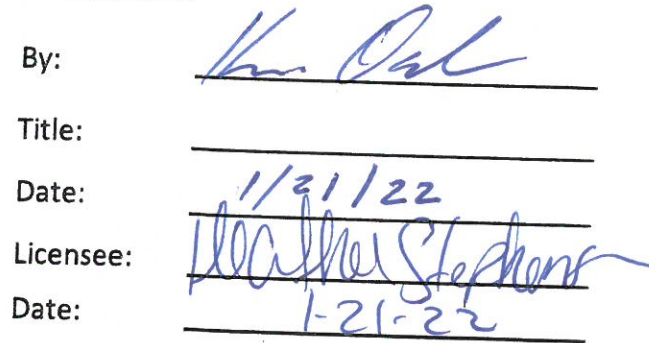 By:
Title:
Date: 1/21/22
Licensee: Heather Stephens
Date: 1-21-22